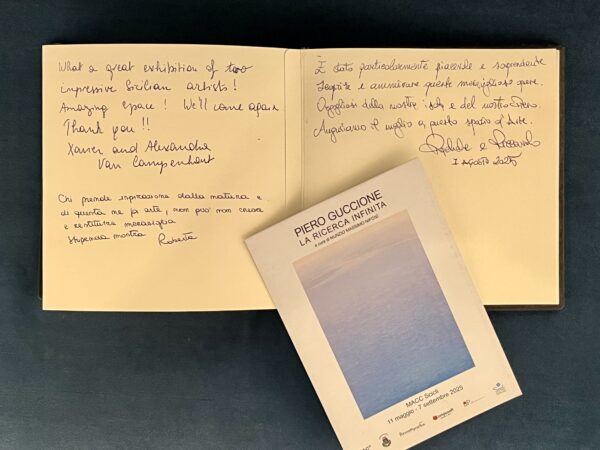 What a great exhibition of two
impressive Sicilian artists!
Amazing space! We'll come again
Thank you!!
Xavier and Alexandra
Van Campenhout
Chi prende ispirazione dalla natura e
di questa ne fa arte, non può non creare
e restituire meraviglia
Stupenda mostra
Roberta
È stato particolarmente piacevole e sorprendente
scoprire e ammirare queste meravigliose opere.
Orgogliosi della nostra isola e del nostro
Auguriamo il meglio a questo spazio d'Arte.
e
1 AGOSTO 2025
PIERO GUCCIONE
LA RICERCA INFINITA
a cura di NUNZIO MASSIMO NIFOSÌ
MACC Scicli
11 maggio - 7 settembre 2025